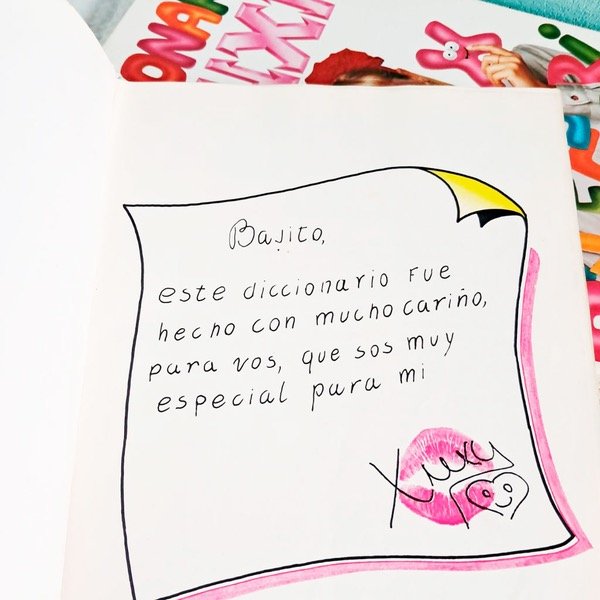 Bajito,
este diccionario fue
hecho con mucho cariño,
para vos, que sos muy
especial para mi
Xuxa